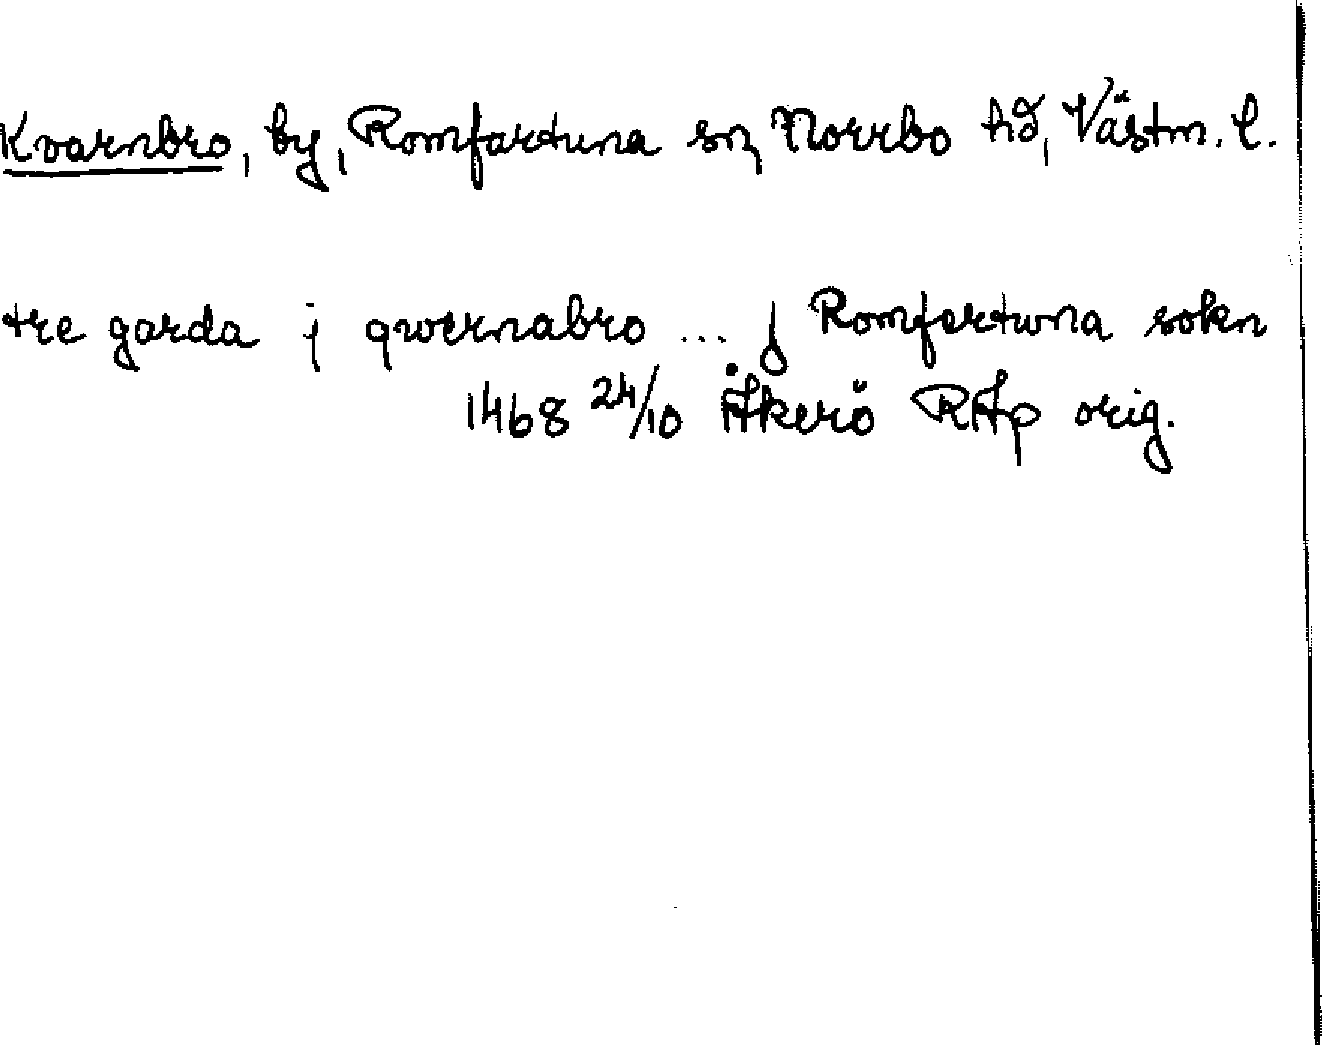 Kvarnbro, by, Romfartuna sn, Norrbo hd, Västm. l.
tre garda j qwernabro ... j Romfertwna sokn
1468 24/10 Åkerö RAp orig.